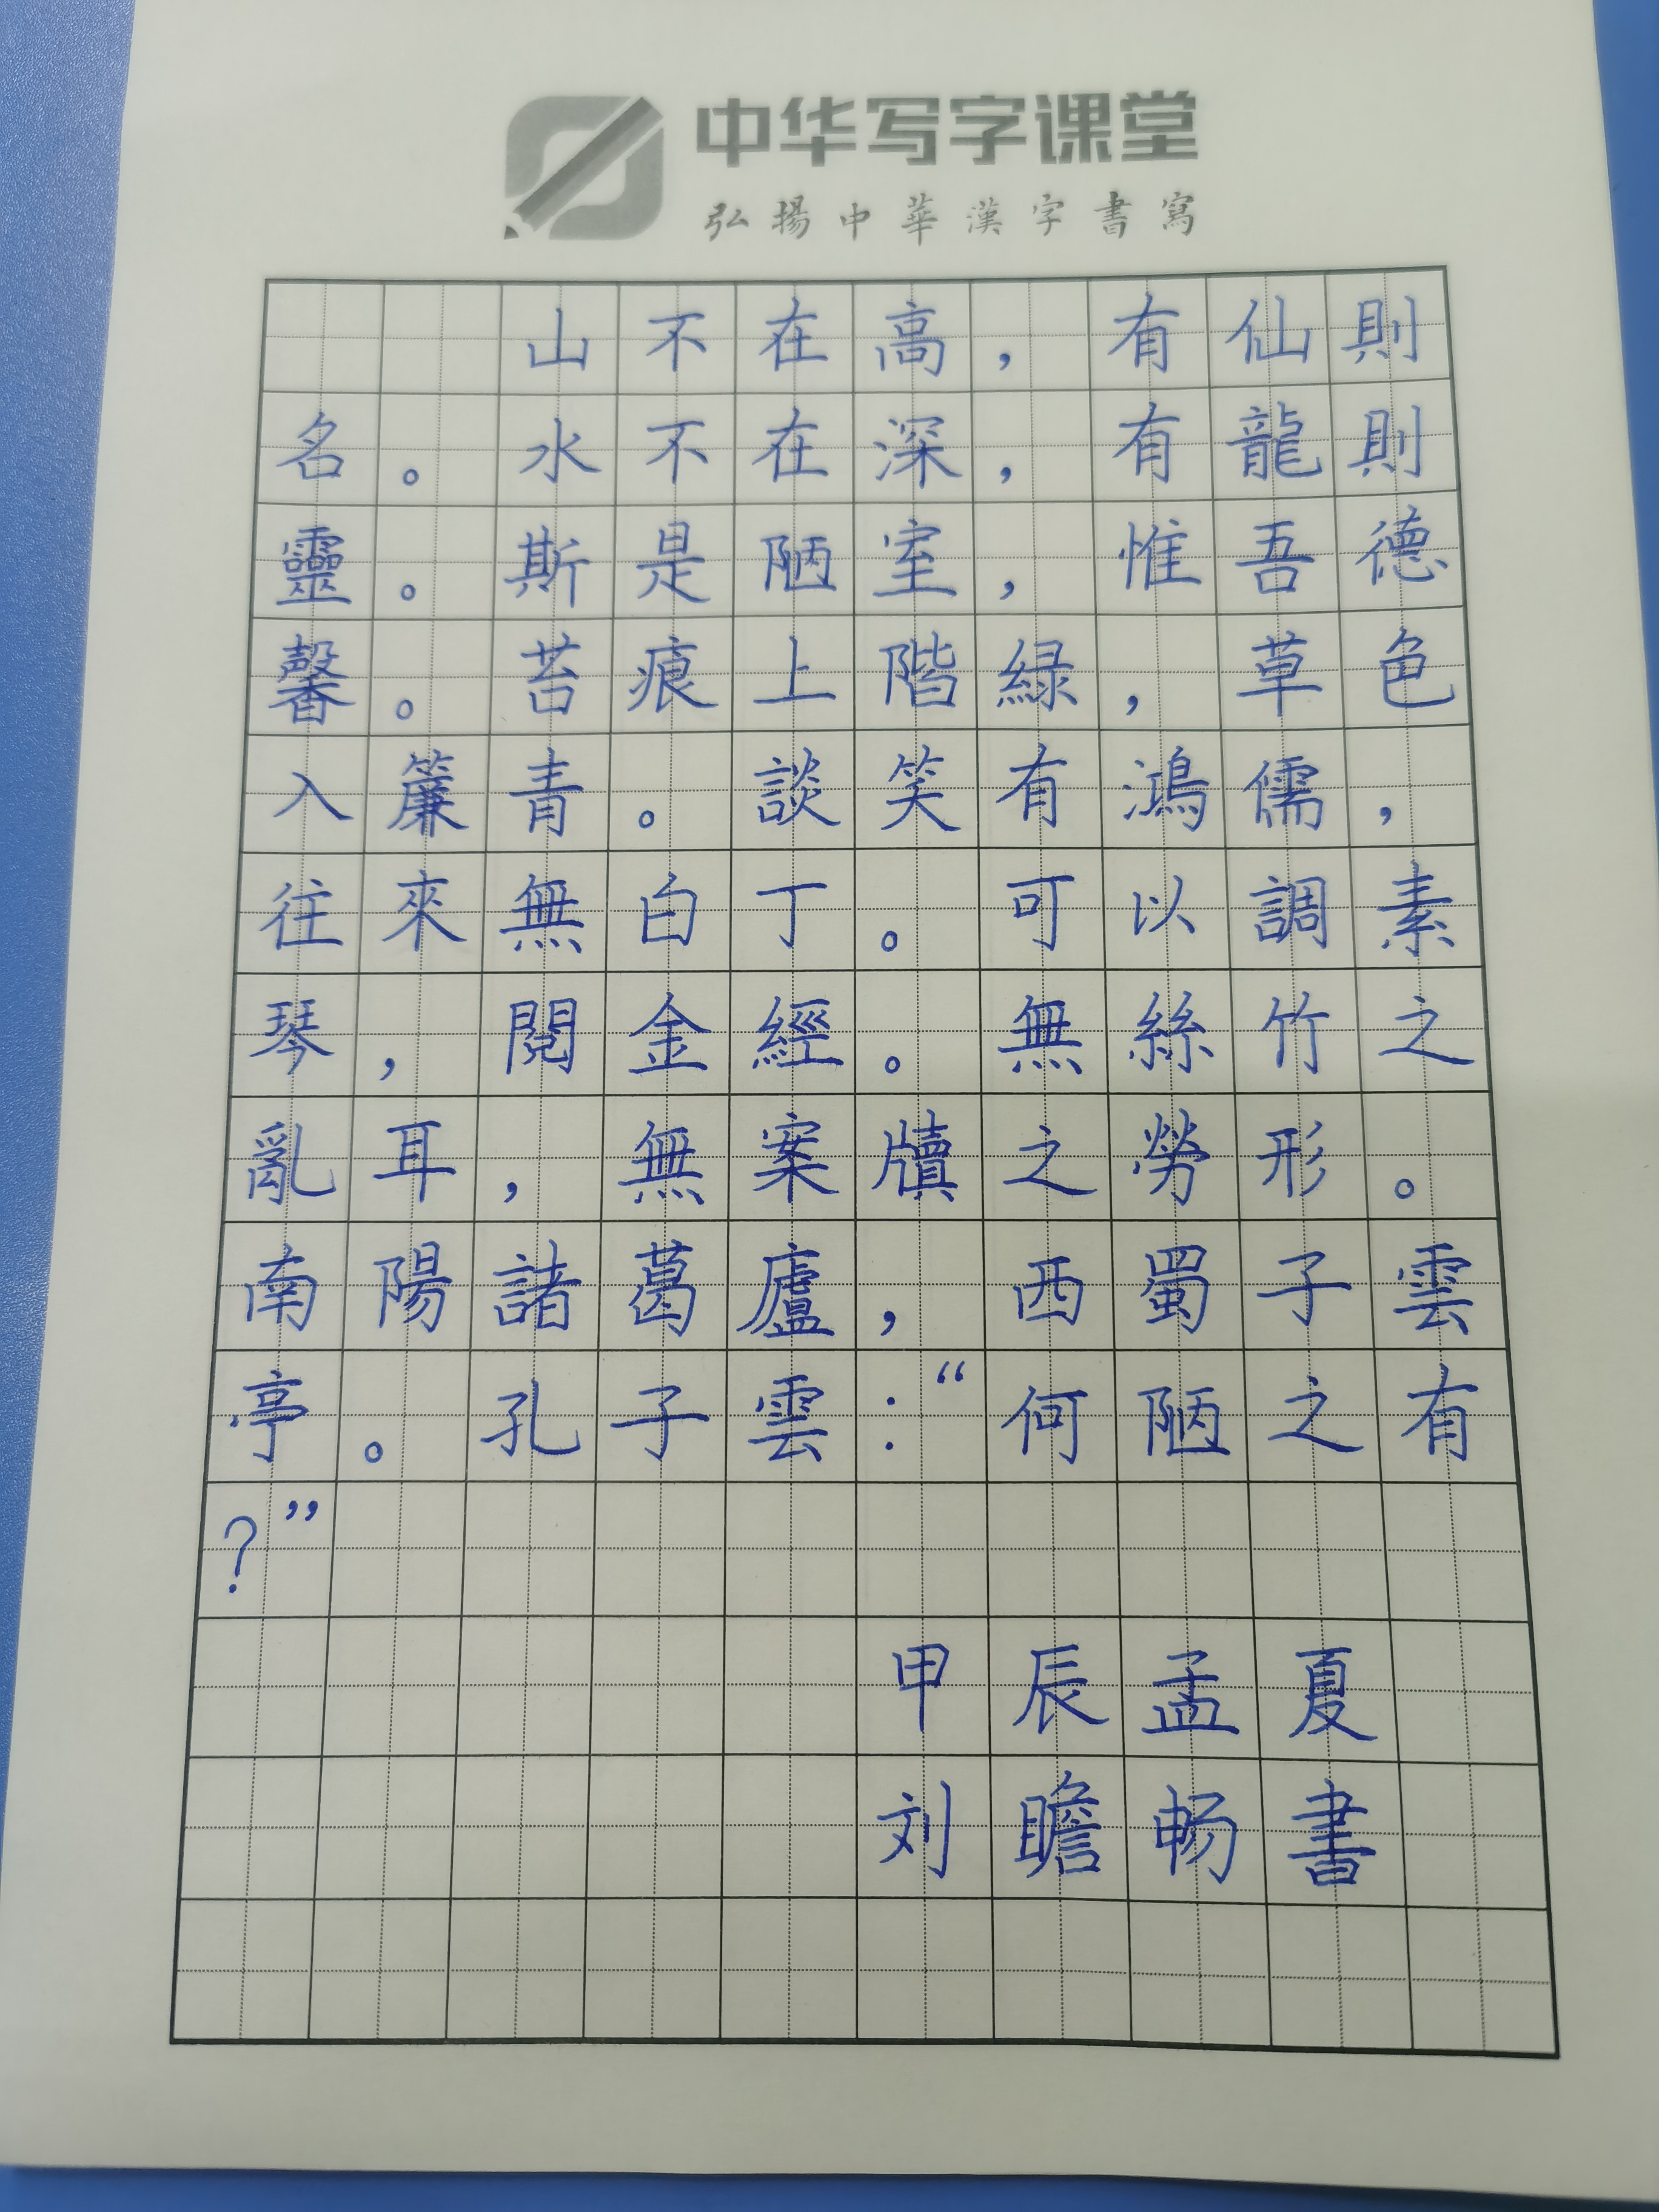 中华写字课堂
弘揚中華漢字書寫
山不在高，有仙則
名。水不在深，有龍則
靈。斯是陋室，惟吾德
馨。苔痕上階緑，草色
入簾青。談笑有鴻儒，
往來無白丁。可以調素
琴，閱金經。無絲竹之
亂耳，無案牘之勞形。
南陽諸葛廬，西蜀子雲
亭。孔子雲：“何陋之有
？”
甲辰孟夏
刘瞻畅書